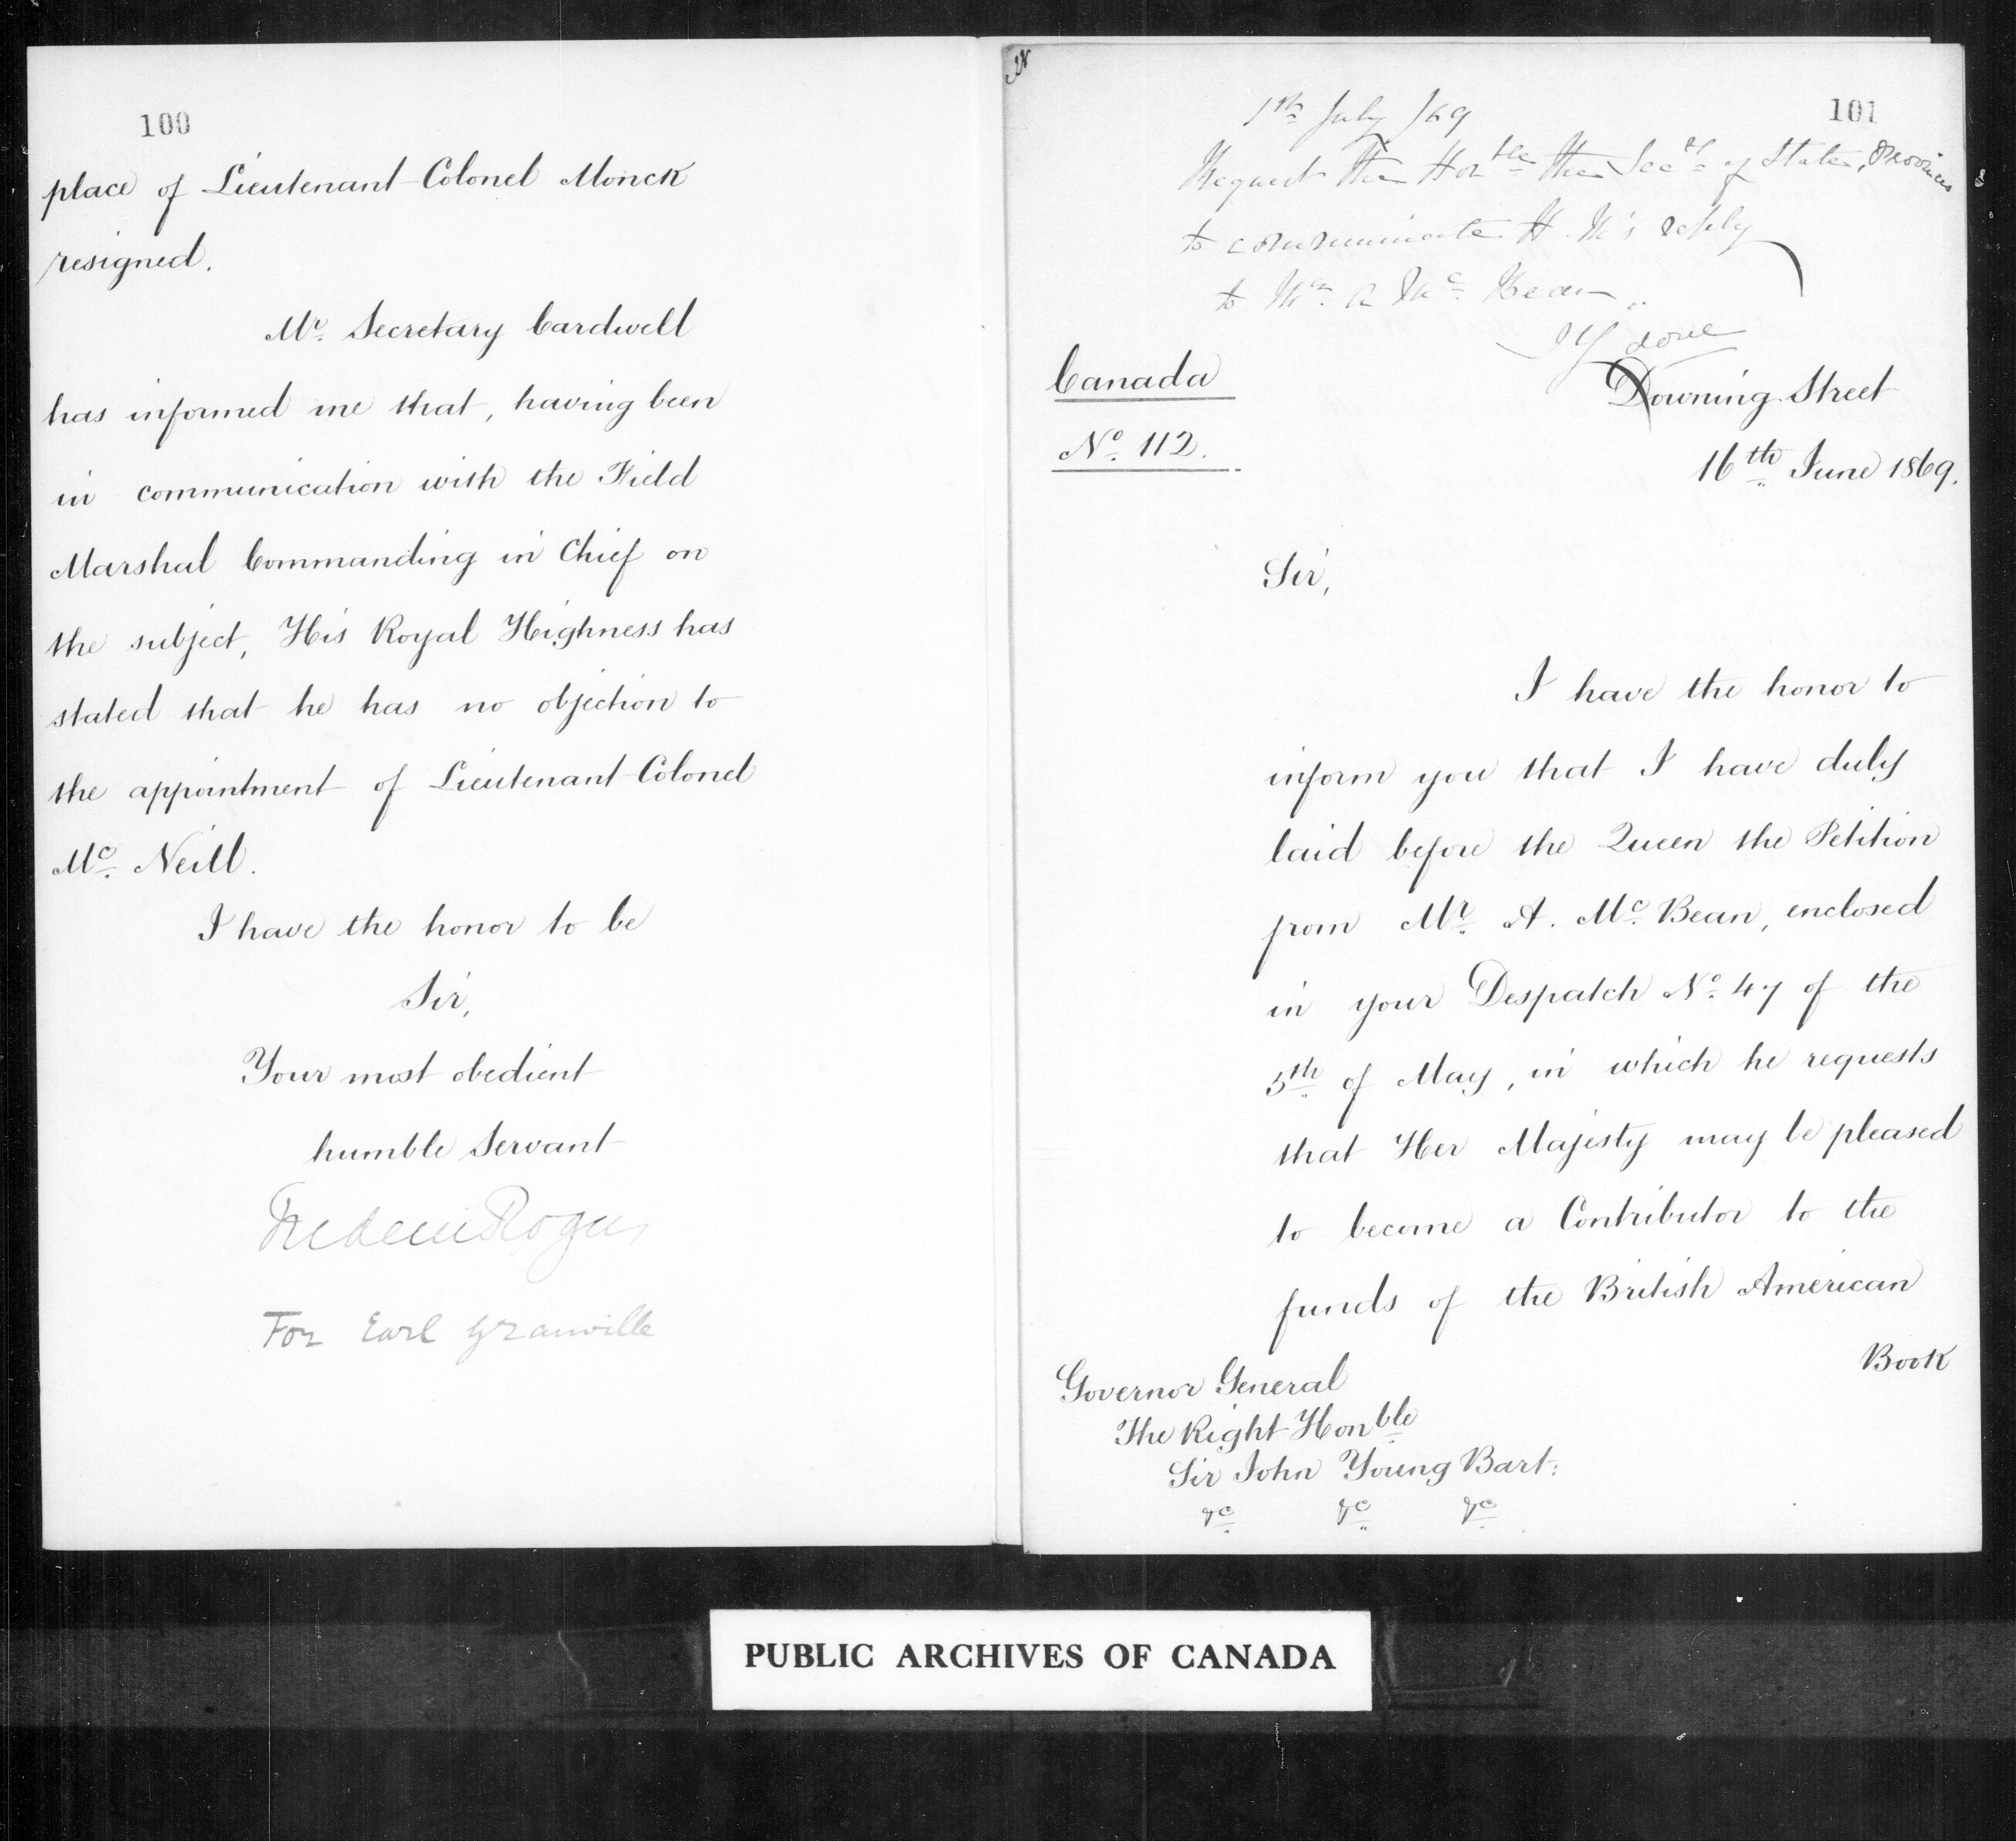 100
place of Lieutenant Colonel Monck
resigned.
Mr. Secretary Cardwell
has informed me that, having been
in communication with the Field
Marshal Commanding in Chief on
the subject, His Royal Highness has
stated that he has no objection to
the appointment of Lieutenant Colonel
Mc. Neill.
I have the honor to be
Sir,
Your most obedient
humble Servant
Frederic Rogers
For Earl Granville
101
July /69
Request the Honble the Secy of State, Provinces
to communicate H. M's reply
to Mr. A Mc. Bean
done
Canada
No. 112.
Downing Street
16th June 1869.
Sir,
I have the honor to
inform you that I have duly
laid before the Queen the Petition
from Mr. A. Mc. Bean, enclosed
in your Despatch No. 47 of the
5th of May, in which he requests
that Her Majesty may be pleased
to become a Contributor to the
funds of the British American
Book
Governor General
The Right Honble
Sir John Young Bart:
&c &c &c
PUBLIC ARCHIVES OF CANADA